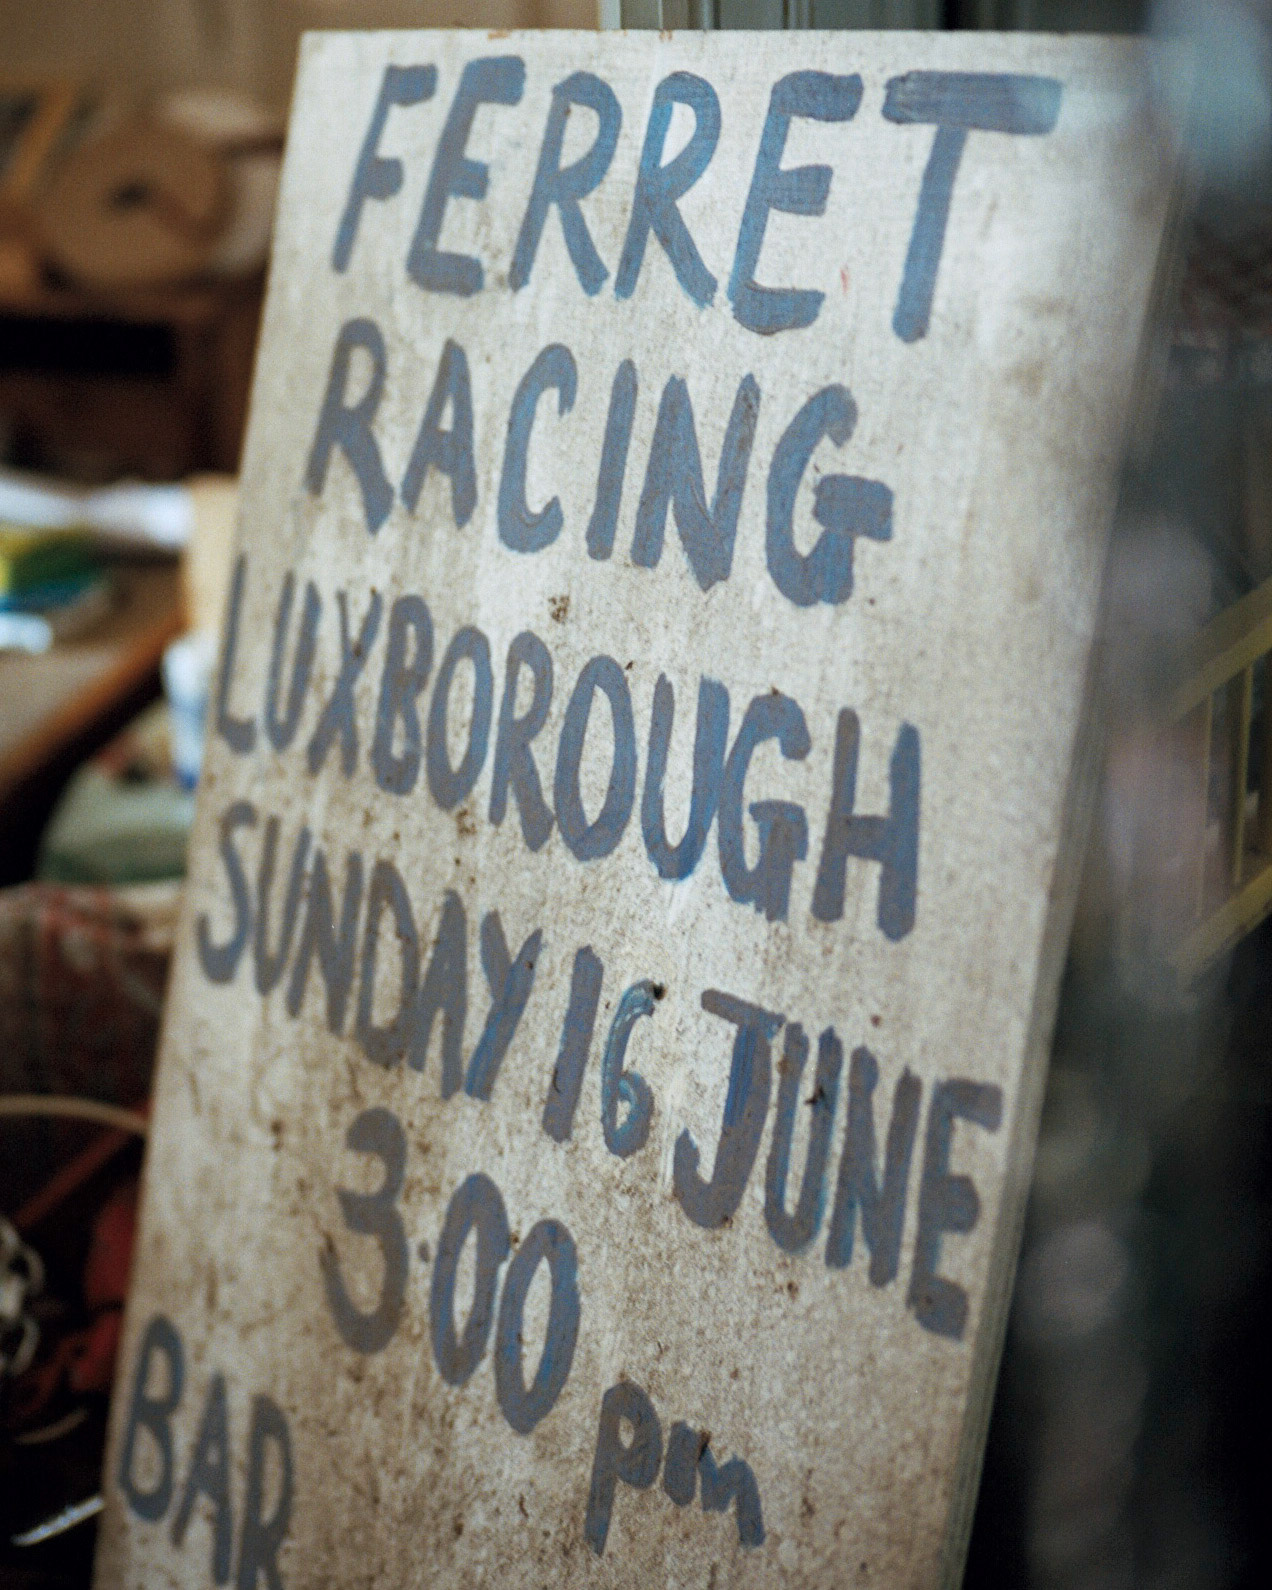 FERRET
RACING
LUXBOROUGH
SUNDAY 16 JUNE
3.00 pm
BAR